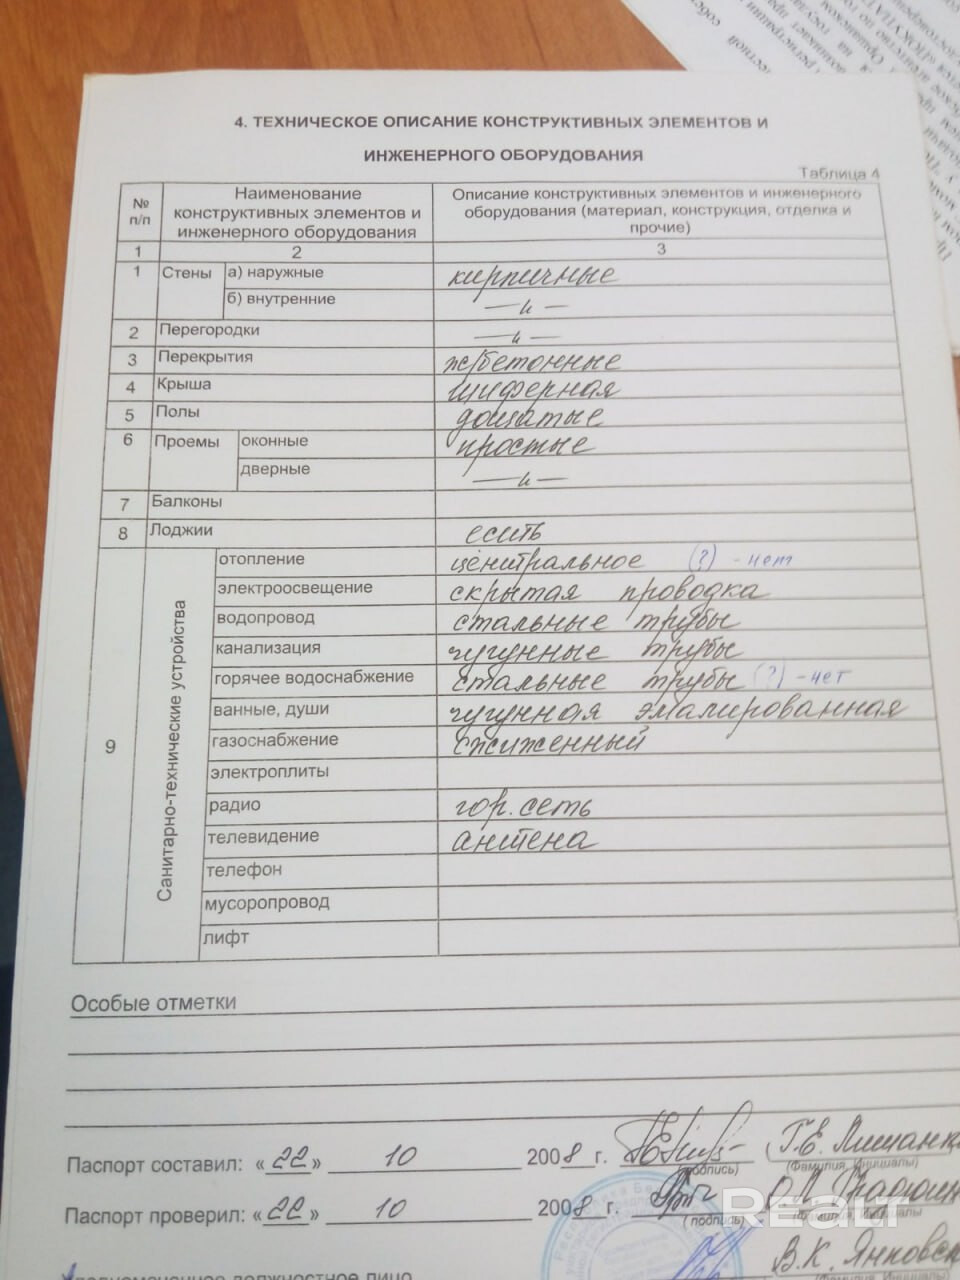 4. ТЕХНИЧЕСКОЕ ОПИСАНИЕ КОНСТРУКТИВНЫХ ЭЛЕМЕНТОВ И
ИНЖЕНЕРНОГО ОБОРУДОВАНИЯ
Таблица 4
№ п/п Наименование конструктивных элементов и инженерного оборудования Описание конструктивных элементов и инженерного оборудования (материал, конструкция, отделка и прочие)
1 2 3
1 Стены а) наружные кирпичные
б) внутренние —и—
2 Перегородки —и—
3 Перекрытия ж/бетонные
4 Крыша шиферная
5 Полы дощатые
6 Проемы оконные простые
дверные —и—
7 Балконы
8 Лоджии есить
9 Санитарно-технические устройства
отопление центральное (?) - нет
электроосвещение скрытая проводка
водопровод стальные трубы
канализация чугунные трубы
горячее водоснабжение стальные трубы (?) - нет
ванные, души чугунная эмалированная
газоснабжение сжиженный
электроплиты
радио гор. сеть
телевидение антена
телефон
мусоропровод
лифт
Особые отметки
Паспорт составил: « 22 » 10 2008 г. Г.Е.
(подпись) (Фамилия, Инициалы)
Паспорт проверил: « 22 » 10 2008 г.
( подпись) Фамилия, Инициалы
В.К. Янковск
должностное лицо
Realt